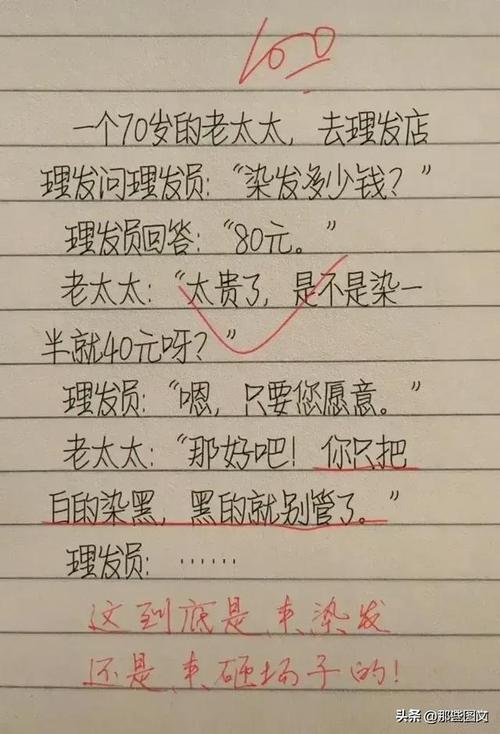 100
一个70岁的老太太，去理发店
理发问理发员：“染发多少钱？”
理发员回答：“80元。”
老太太：“太贵了，是不是染一
半就40元呀？”
理发员：“嗯，只要您愿意。”
老太太：“那好吧！你只把
白的染黑，黑的就别管了。”
理发员：……
这到底是来染发
还是来砸场子的！
头条 @那些图文